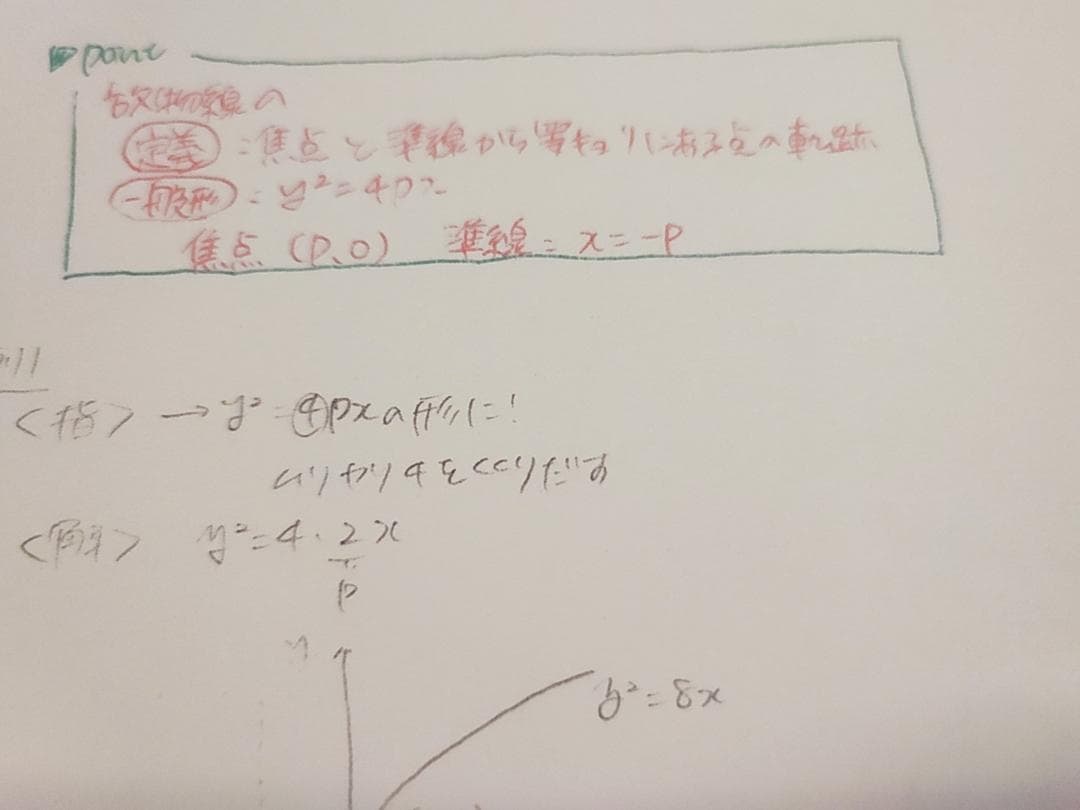 point
放物線の
定義:焦点と準線から等キョリにある点の軌跡
一般形:y²=4px
焦点 (p,0) 準線:x=-p
11
<指> → y²=④pxの形に!
ムリヤリ4をくくりだす
<解> y²=4・2x
p
y
y²=8x